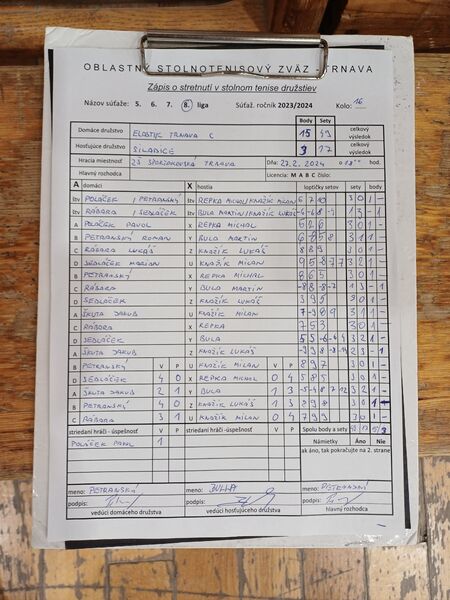 OBLASTNÝ STOLNOTENISOVÝ ZVÄZ TRNAVA
Zápis o stretnutí v stolnom tenise družstiev
Názov súťaže: 5. 6. 7. 8. liga Súťaž. ročník 2023/2024 Kolo: 16
Body Sety
Domáce družstvo ELASTIK TRNAVA C 15 49 celkový výsledok
Hosťujúce družstvo SILADICE 3 17 celkový výsledok
Hracia miestnosť ZŠ SPORTOVSKA TRNAVA Dňa: 27.2.2024 o 18 hod.
Hlavný rozhodca Licencia: M A B C číslo:
A domáci X hostia loptičky setov sety body
štv POLÁČEK / PETRANSKÝ štv REPKA MICHAL/KNAŽÍK MILAN 6 7 10 3 0 1 -
štv RÁBARA / SEDLÁČEK štv BULA MARTIN/KNAŽÍK LUKÁŠ 1 3 - 1
A POLÁČEK PAVOL X REPKA MICHAL 5 2 6 3 0 1 -
B PETRANSKÝ ROMAN Y BULA MARTIN 3 1 1 -
C RÁBARA LUKÁŠ Z KNAŽÍK LUKÁŠ 8 8 9 3 0 1 -
D SEDLÁČEK MARIÁN U KNAŽÍK MILAN 3 2 1 -
B PETRANSKÝ X REPKA MICHAL 8 6 5 3 0 1 -
C RÁBARA Y BULA MARTIN -8 8 -8 -7 1 3 - 1
D SEDLÁČEK Z KNAŽÍK LUKÁŠ 3 9 5 3 0 1 -
A ŠKUTA JAKUB U KNAŽÍK MILAN 7 -9 8 9 3 1 1 -
C RÁBORA X REPKA 7 5 3 3 0 1 -
D SEDLÁČEK Y BULA 5 5 -6 -4 4 3 2 1 -
A ŠKUTA JAKUB Z KNAŽÍK LUKÁŠ 2 3 - 1
B PETRANSKÝ V P U KNAŽÍK MILAN V P 8 9 7 3 0 1 -
D SEDLÁČEK 4 0 X REPKA MICHAL 0 4 5 8 5 3 0 1 -
A ŠKUTA JAKUB 2 1 Y BULA 1 3 -5 -4 8 7 12 3 2 1 -
B PETRANSKÝ 4 0 Z KNAŽÍK LUKÁŠ 1 3 8 9 8 3 0 1 -
C RÁBORA 3 1 U KNAŽÍK MILAN 0 4 7 9 9 3 0 1 -
striedaní hráči - úspešnosť V P striedaní hráči -úspešnosť V P Spolu body a sety
POLÁČEK PAVOL 1 Námietky Áno Nie
ak áno, tak pokračujte na 2. strane
meno: PETRANSKÝ meno: BULLA meno: PETRANSKÝ
podpis: podpis: podpis:
vedúci domáceho družstva vedúci hosťujúceho družstva hlavný rozhodca